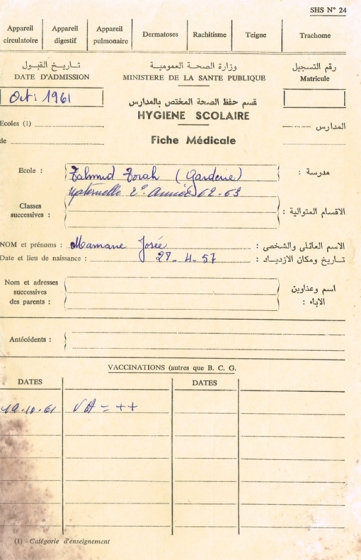 SHS N° 24
Appareil circulatoire
Appareil digestif
Appareil pulmonaire
Dermatoses
Rachitisme
Teigne
Trachome
تاريخ القبول
وزارة الصحة العمومية
رقم التسجيل
DATE D'ADMISSION
MINISTERE DE LA SANTE PUBLIQUE
Matricule
Oct: 1961
قسم حفظ الصحة المختص بالمدارس
HYGIENE SCOLAIRE
Ecoles (1)
المدارس
de
Fiche Médicale
Ecole : Talmud Torah (Garderie)
مدرسة :
Maternelle 2e Année 62-63
Classes successives :
الاقسام المتوالية :
NOM et prénoms : Mamane Josée
الاسم العائلي والشخصي :
Date et lieu de naissance : 27-4-57
تاريخ ومكان الازدياد :
Nom et adresses successives des parents :
اسم وعناوين الاباء :
Antécédents :
VACCINATIONS (autres que B. C. G.
DATES
DATES
19.10.61
= ++
(1) Catégorie d'enseignement